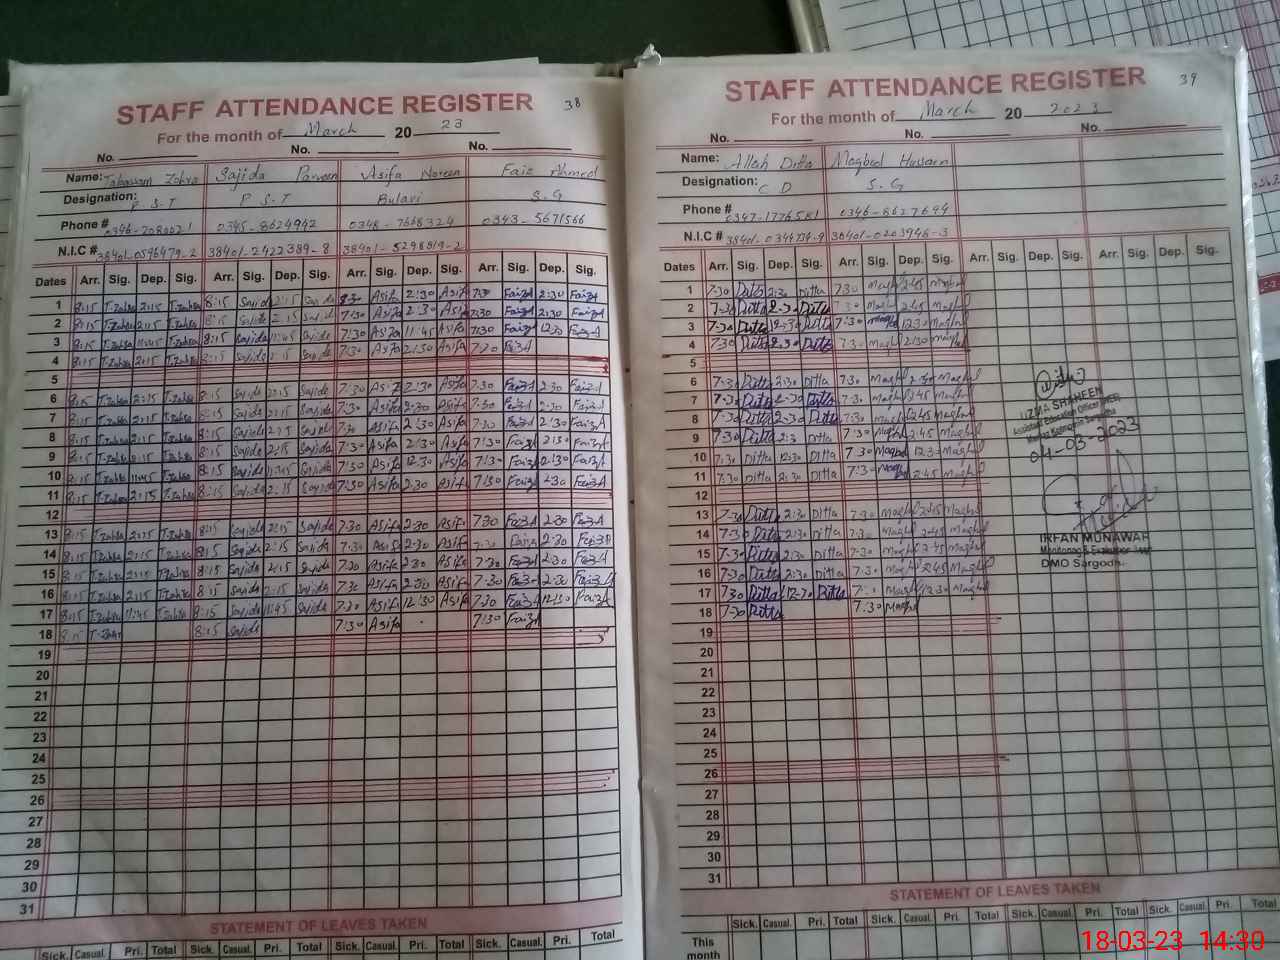 STAFF ATTENDANCE REGISTER 38
For the month of March 20 23
No. No. No.
Name: Tabassam Zahra Sajida Parveen Asifa Noreen Faiz Ahmed
Designation: P.S.T P.S.T Bulavi S.G
Phone # 0345-8624942 0348-7668324 0343-5671566
N.I.C # 38401-2422389-8
Dates Arr. Sig. Dep. Sig. Arr. Sig. Dep. Sig. Arr. Sig. Dep. Sig. Arr. Sig. Dep. Sig.
1 8:15 T.zahra 2:15 T.zahra 8:15 Sajida 2:15 Sajida Asifa 2:30 Asifa 7:30 Faiz A 2:30 Faiz A
2 8:15 T.zahra 2:15 T.zahra 8:15 Sajida 2:15 Sajida 7:30 Asifa 2:30 Asifa 7:30 Faiz A 2:30 Faiz A
3 8:15 T.zahra 11:45 T.zahra 8:15 Sajida 11:45 Sajida 7:30 Asifa 11:45 Asifa 7:30 Faiz A 12:30 Faiz A
4 8:15 T.zahra 2:15 T.zahra 8:15 Sajida 2:15 Sajida 7:30 Asifa 2:30 Asifa 7:30 Faiz A
5
6 8:15 T.zahra 2:15 T.zahra 8:15 Sajida 2:15 Sajida 7:30 Asifa 2:30 Asifa 7:30 Faiz A 2:30 Faiz A
7 8:15 T.zahra 2:15 T.zahra 8:15 Sajida 2:15 Sajida 7:30 Asifa 2:30 Asifa 7:30 Faiz A 2:30 Faiz A
8 8:15 T.zahra 2:15 T.zahra 8:15 Sajida 2:15 Sajida 7:30 Asifa 2:30 Asifa 7:30 Faiz A 2:30 Faiz A
9 8:15 T.zahra 2:15 T.zahra 8:15 Sajida 2:15 Sajida 7:30 Asifa 2:30 Asifa 7:30 Faiz A 2:30 Faiz A
10 8:15 T.zahra 11:45 T.zahra 8:15 Sajida 11:45 Sajida 7:30 Asifa 12:30 Asifa 7:30 Faiz A 12:30 Faiz A
11 8:15 T.zahra 2:15 T.zahra 8:15 Sajida 2:15 Sajida 7:30 Asifa 2:30 Asifa 7:30 Faiz A 2:30 Faiz A
12
13 8:15 T.zahra 2:15 T.zahra 8:15 Sajida 2:15 Sajida 7:30 Asifa 2:30 Asifa 7:30 Faiz A 2:30 Faiz A
14 8:15 T.zahra 2:15 T.zahra 8:15 Sajida 2:15 Sajida 7:30 Asifa 2:30 Asifa 7:30 Faiz A 2:30 Faiz A
15 8:15 T.zahra 2:15 T.zahra 8:15 Sajida 2:15 Sajida 7:30 Asifa 2:30 Asifa 7:30 Faiz A 2:30 Faiz A
16 8:15 T.zahra 2:15 T.zahra 8:15 Sajida 2:15 Sajida 7:30 Asifa 2:30 Asifa 7:30 Faiz A 2:30 Faiz A
17 8:15 T.zahra 11:45 T.zahra 8:15 Sajida 11:45 Sajida 7:30 Asifa 12:30 Asifa 7:30 Faiz A 12:30 Faiz A
18 8:15 T.zahra 8:15 Sajida 7:30 Asifa 7:30 Faiz A
19
20
21
22
23
24
25
26
27
28
29
30
31
STATEMENT OF LEAVES TAKEN
Sick. Casual. Pri. Total Sick. Casual. Pri. Total Sick. Casual. Pri. Total Sick. Casual. Pri. Total
STAFF ATTENDANCE REGISTER 39
For the month of March 20 2023
No. No. No.
Name: Allah Ditta Maqbool Hussain
Designation: C D S.G
Phone # 0347-1776581 0346-8627694
N.I.C # 38401-0203948-3
Dates Arr. Sig. Dep. Sig. Arr. Sig. Dep. Sig. Arr. Sig. Dep. Sig. Arr. Sig. Dep. Sig.
1 7:30 Ditta 2:30 Ditta 7:30 2:45
2 7:30 Ditta 2:30 Ditta 7:30 2:45
3 7:30 Ditta 2:30 Ditta 7:30 12:30
4 7:30 Ditta 2:30 Ditta 7:30 2:30
5
6 7:30 Ditta 2:30 Ditta 7:30 2:30
7 7:30 Ditta 2:30 Ditta 7:30 2:45
8 7:30 Ditta 2:30 Ditta 7:30 2:45
9 7:30 Ditta 2:3 Ditta 7:30 2:45
10 7:30 Ditta 12:30 Ditta 7:30 12:3
11 7:30 Ditta 2:30 Ditta 7:30 2:45
12
13 7:30 Ditta 2:30 Ditta 7:30 2:45
14 7:30 Ditta 2:30 Ditta 7:30 2:45
15 7:30 Ditta 2:30 Ditta 7:30 2:45
16 7:30 Ditta 2:30 Ditta 7:30 2:45
17 7:30 Ditta 12:30 Ditta 12:30
18 7:30 Ditta 7:30
19
20
21
22
23
24
25
26
27
28
29
30
31
UZMA SHAHEEN
04-03-2023
IRFAN MUNAWAR
Monitoring & Evaluation
DMO Sargodh
STATEMENT OF LEAVES TAKEN
Sick. Casual. Pri. Total Sick. Casual. Pri. Total Sick. Casual. Pri. Total Sick. Casual. Pri. Total
This month
18-03-23 14:30